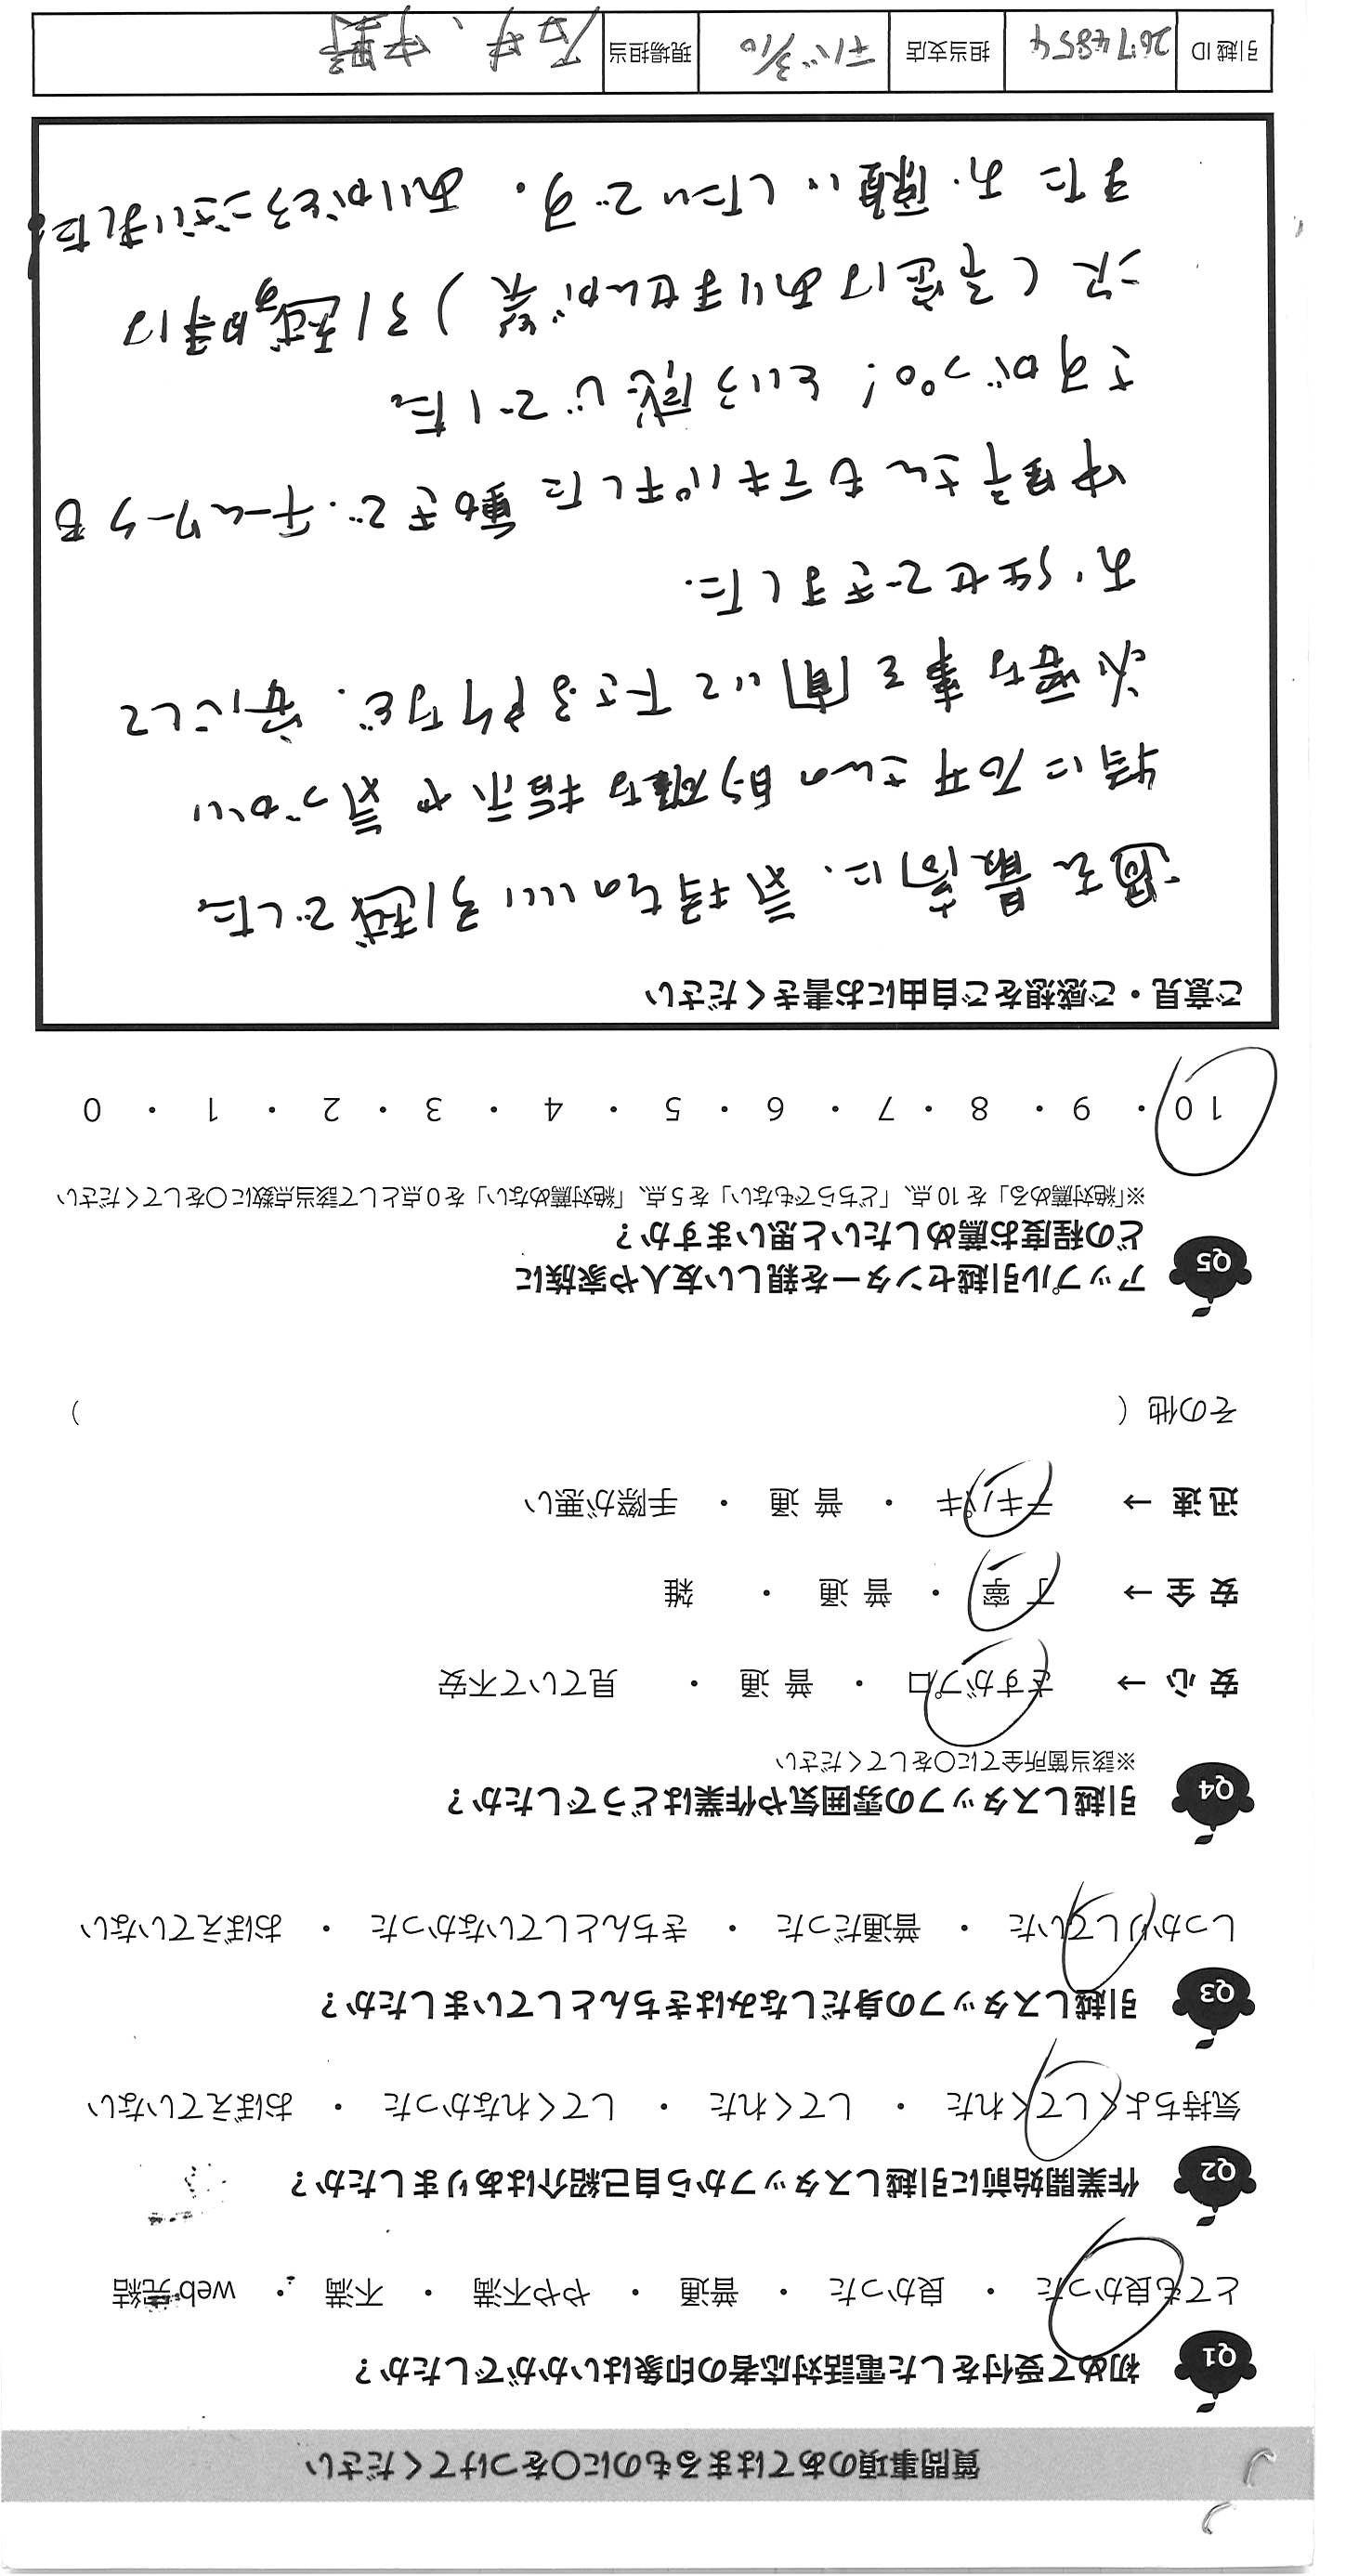 質問事項のあてはまるものに〇をつけてください
Q1 初めて受付をした電話対応者の印象はいかがでしたか？
とても良かった ・ 良かった ・ 普通 ・ やや不満 ・ 不満 ・ web完結
Q2 作業開始前に引越しスタッフから自己紹介はありましたか？
気持ちよくしてくれた ・ してくれた ・ してくれなかった ・ おぼえていない
Q3 引越しスタッフの身だしなみはきちんとしていましたか？
しっかりしていた ・ 普通だった ・ きちんとしていなかった ・ おぼえていない
Q4 引越しスタッフの雰囲気や作業はどうでしたか？
※該当箇所全てに〇をしてください
安心 → さすがプロ ・ 普通 ・ 見ていて不安
安全 → 丁寧 ・ 普通 ・ 雑
迅速 → テキパキ ・ 普通 ・ 手際が悪い
その他（ ）
Q5 アップル引越センターを親しい友人や家族に
どの程度お薦めしたいと思いますか？
※「絶対薦める」を10点、「どちらでもない」を5点、「絶対薦めない」を0点として該当点数に〇をしてください
10 ・ 9 ・ 8 ・ 7 ・ 6 ・ 5 ・ 4 ・ 3 ・ 2 ・ 1 ・ 0
ご意見・ご感想をご自由にお書きください
過去最高に、気持ちのいい引越でした。
特に石井さんの的確な指示や気づかい
必要な事を聞いて下さる所など、安心して
お任せできました。
中野さんもテキパキした動きで、チームワークも
さすがプロ！という感じでした。
次（予定はありませんが笑）引越す時は
またお願いしたいです。ありがとうございました。
引越ID 26748554 担当支店 チバ 3/10 現場担当 石井、中野